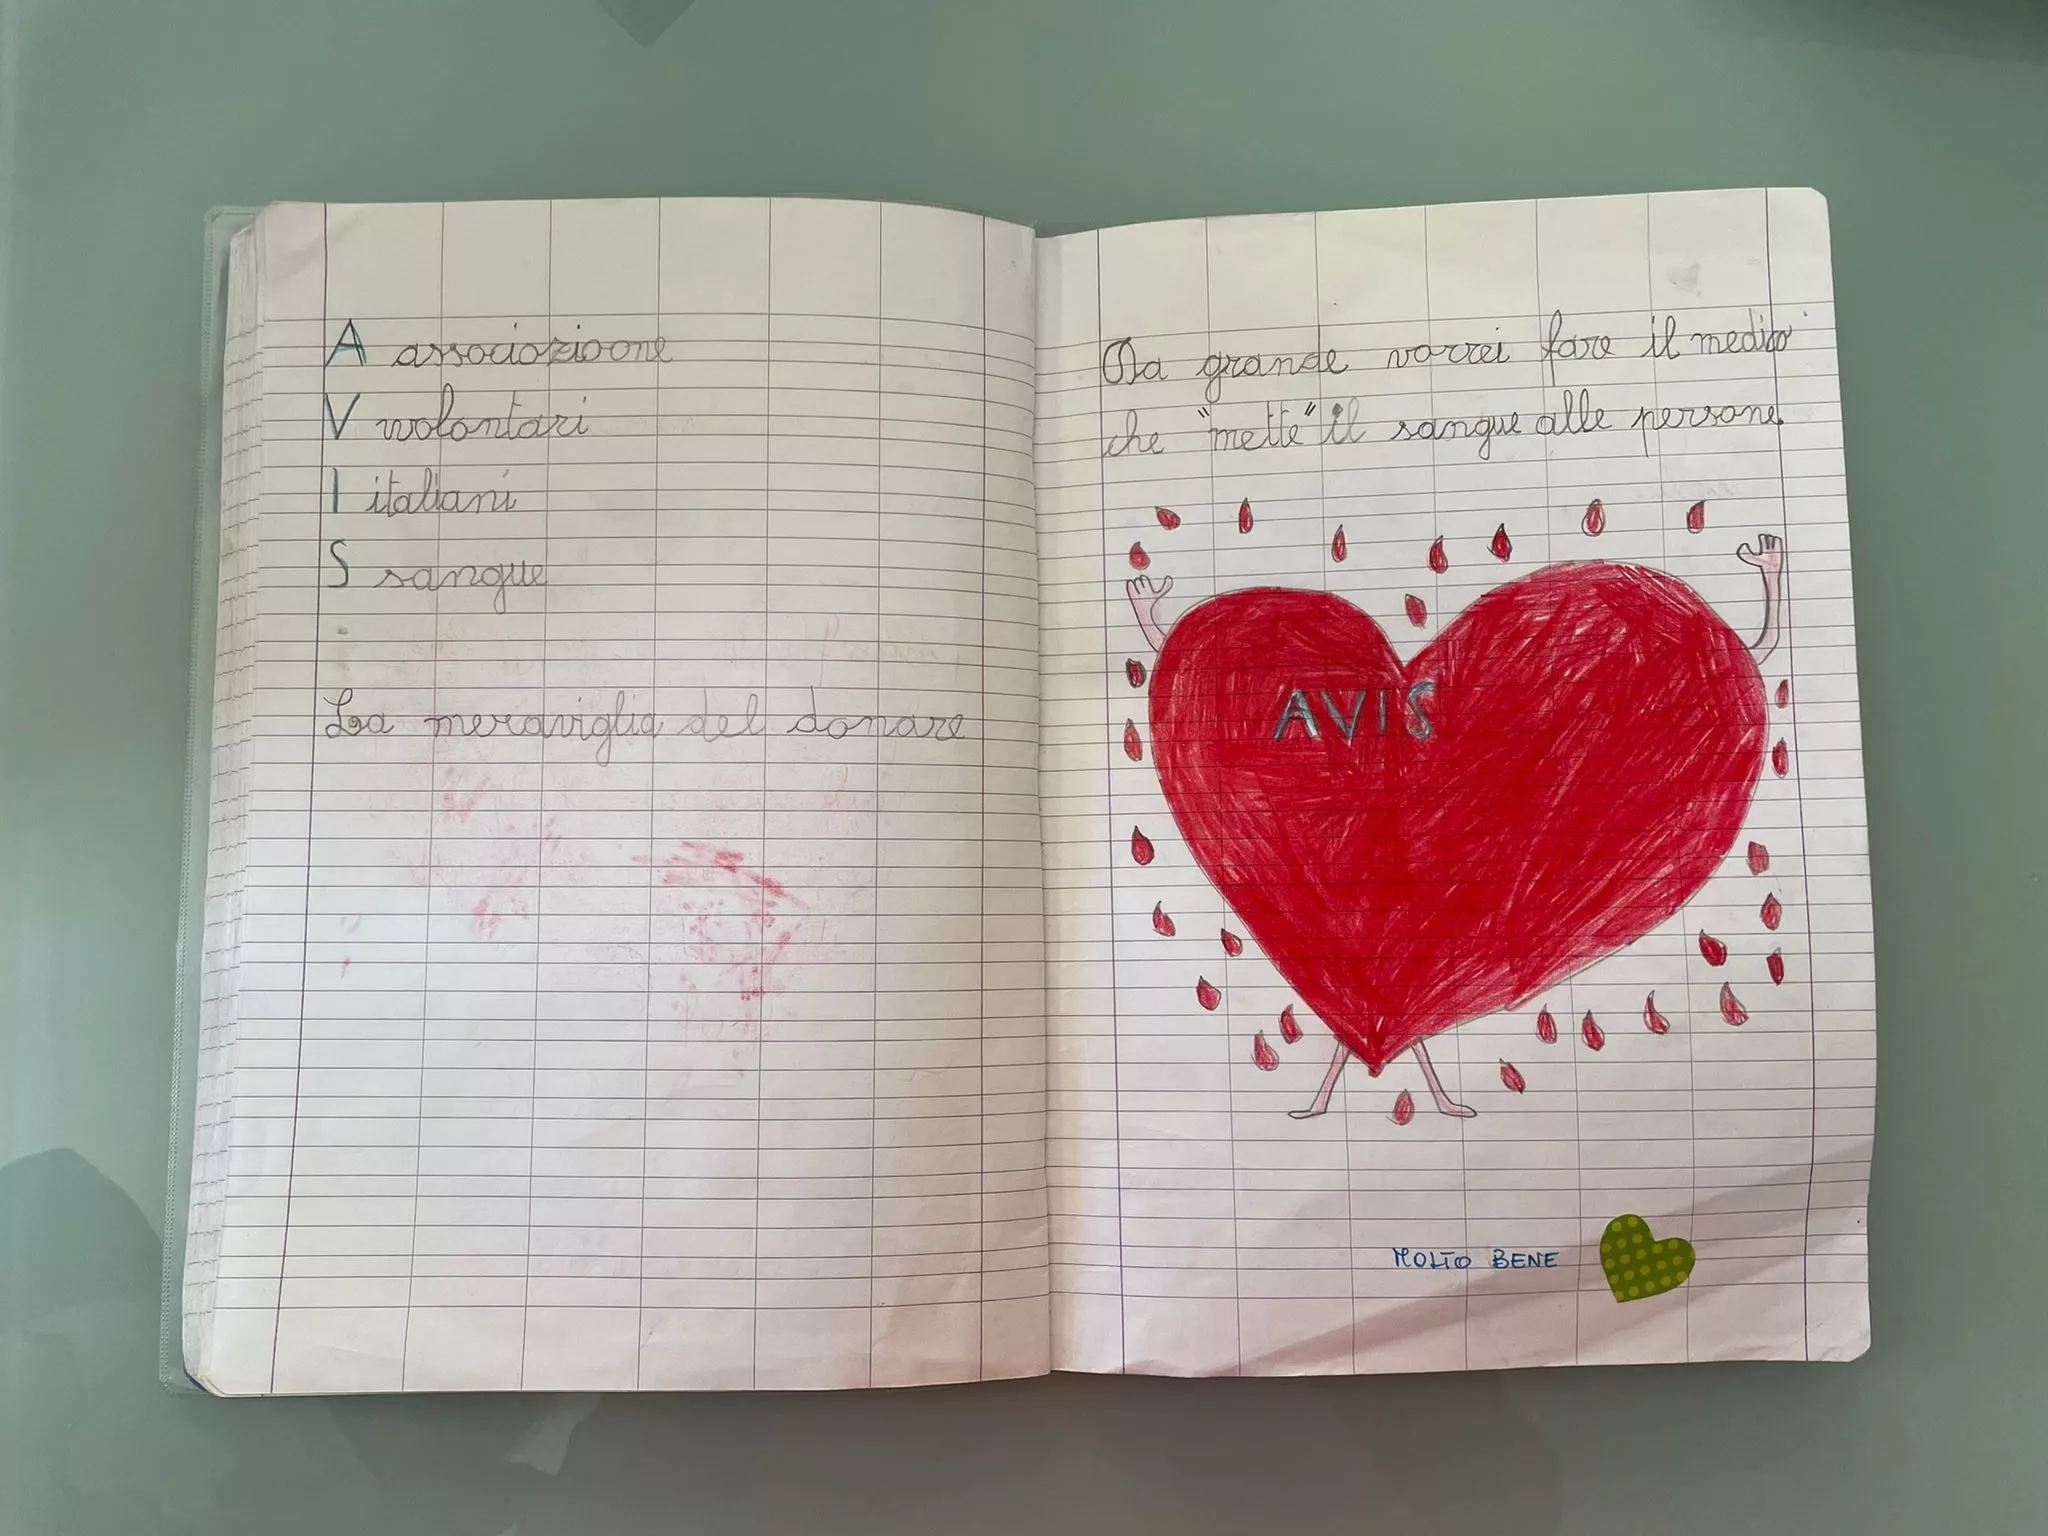 A associazioone
V volontari
I italiani
S sangue
La meraviglia del donare
Da grande vorrei fare il medico
che "mette" il sangue alle persone
AVIS
MOLTO BENE